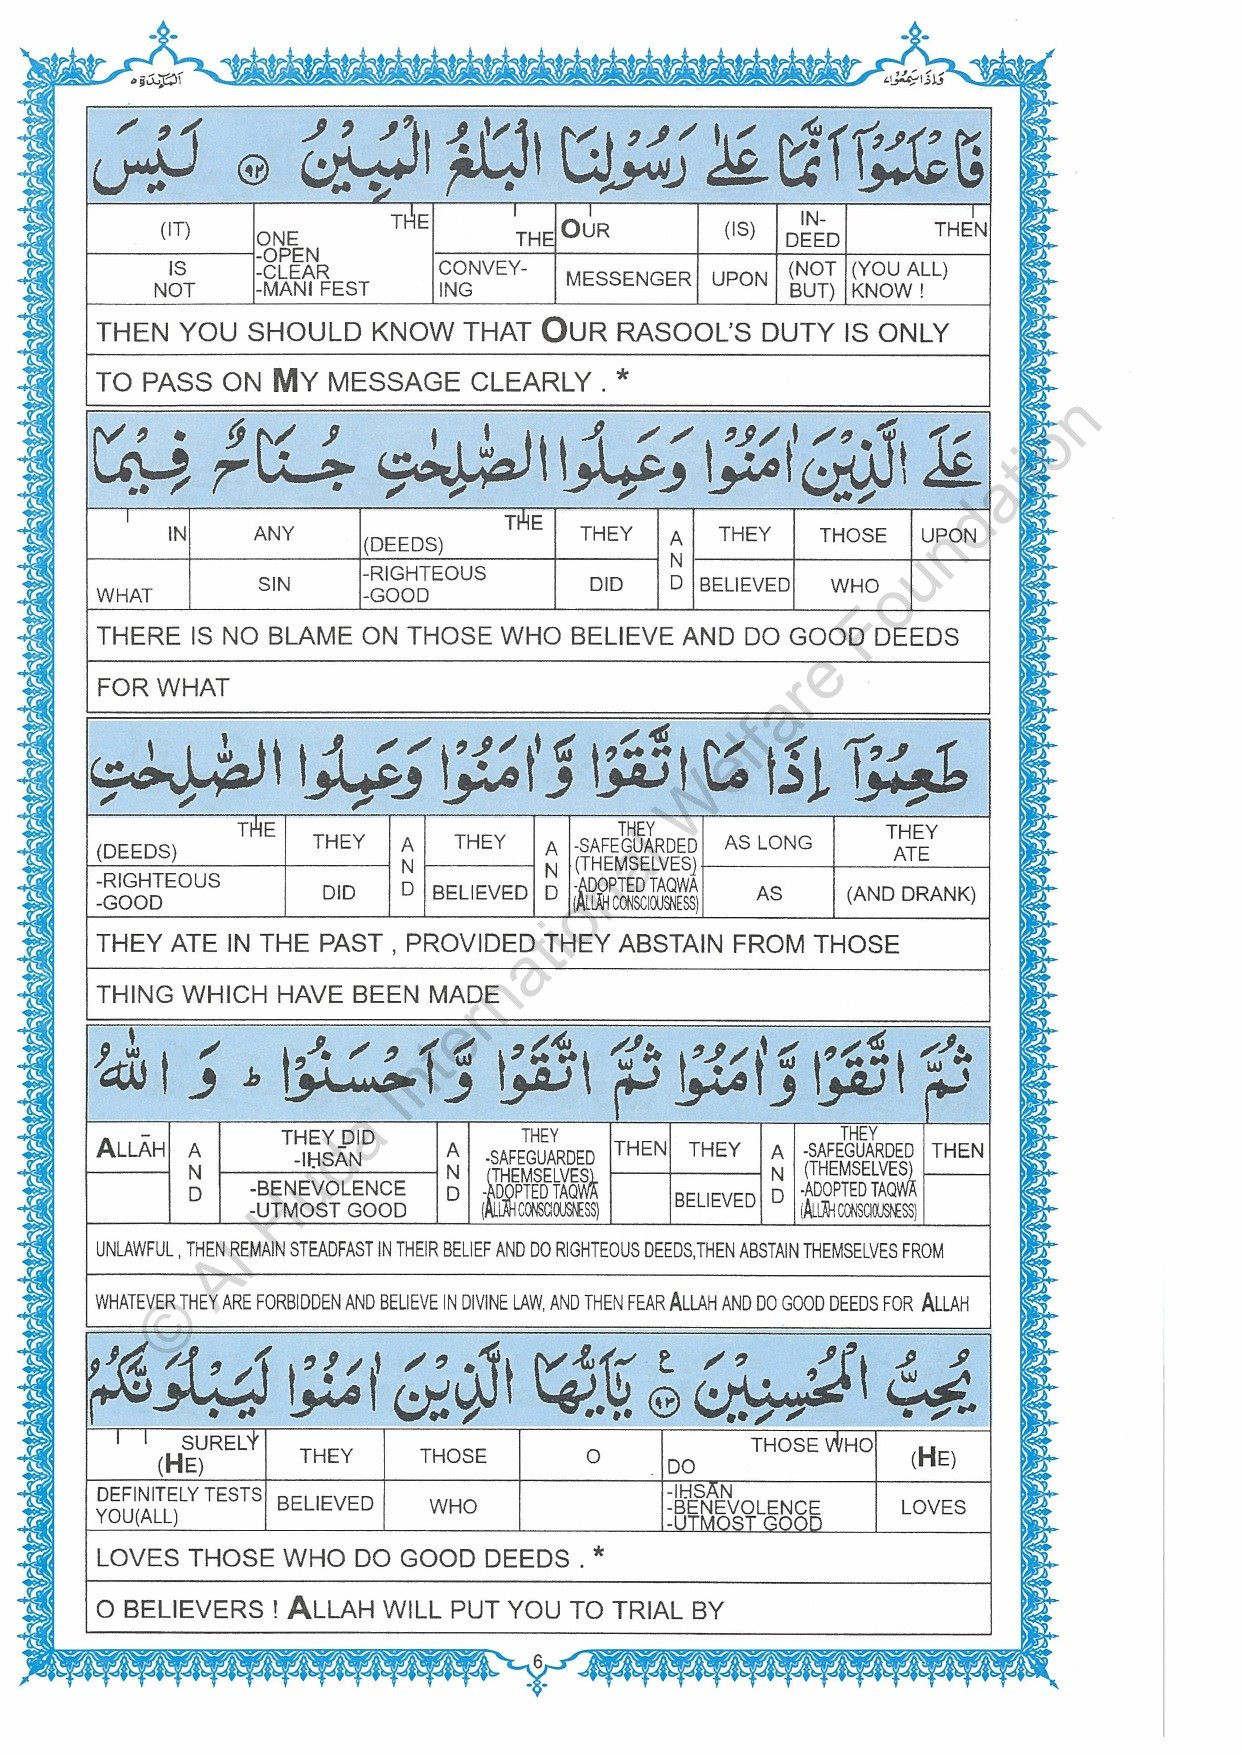 وَاِذَا سَمِعُوْا٧ اَلْمَآئِدَة٥
فَاعْلَمُوْۤا اَنَّمَا عَلٰى رَسُوْلِنَا الْبَلٰغُ الْمُبِيْنُ ۝٩٢ لَيْسَ
(IT) THE THE OUR (IS) IN- THEN
ONE DEED
-OPEN
IS -CLEAR CONVEY- MESSENGER UPON (NOT (YOU ALL)
NOT -MANI FEST ING BUT) KNOW !
THEN YOU SHOULD KNOW THAT OUR RASOOL'S DUTY IS ONLY
TO PASS ON MY MESSAGE CLEARLY . *
عَلَى الَّذِيْنَ اٰمَنُوْا وَعَمِلُوا الصّٰلِحٰتِ جُنَاحٌ فِيْمَا
IN ANY THE THEY A THEY THOSE UPON
(DEEDS) N
WHAT SIN -RIGHTEOUS DID D BELIEVED WHO
-GOOD
THERE IS NO BLAME ON THOSE WHO BELIEVE AND DO GOOD DEEDS
FOR WHAT
طَعِمُوْۤا اِذَا مَا اتَّقَوْا وَّاٰمَنُوْا وَعَمِلُوا الصّٰلِحٰتِ
THE THEY A THEY A THEY AS LONG THEY
(DEEDS) N N -SAFEGUARDED ATE
(THEMSELVES)
-RIGHTEOUS DID D BELIEVED D -ADOPTED TAQWĀ AS (AND DRANK)
-GOOD (ALLĀH CONSCIOUSNESS)
THEY ATE IN THE PAST , PROVIDED THEY ABSTAIN FROM THOSE
THING WHICH HAVE BEEN MADE
ثُمَّ اتَّقَوْا وَّاٰمَنُوْا ثُمَّ اتَّقَوْا وَّاَحْسَنُوْا ؕ وَ اللّٰهُ
ALLĀH A THEY DID A THEY THEN THEY A THEY THEN
N -IḤSĀN N -SAFEGUARDED N -SAFEGUARDED
(THEMSELVES) (THEMSELVES)
D -BENEVOLENCE D -ADOPTED TAQWĀ BELIEVED D -ADOPTED TAQWĀ
-UTMOST GOOD (ALLĀH CONSCIOUSNESS) (ALLĀH CONSCIOUSNESS)
UNLAWFUL , THEN REMAIN STEADFAST IN THEIR BELIEF AND DO RIGHTEOUS DEEDS,THEN ABSTAIN THEMSELVES FROM
WHATEVER THEY ARE FORBIDDEN AND BELIEVE IN DIVINE LAW, AND THEN FEAR ALLAH AND DO GOOD DEEDS FOR ALLAH
يُحِبُّ الْمُحْسِنِيْنَ ۝٩٣ ع يٰۤاَيُّهَا الَّذِيْنَ اٰمَنُوْا لَيَبْلُوَنَّكُمُ
SURELY THEY THOSE O THOSE WHO (HE)
(HE) DO
DEFINITELY TESTS BELIEVED WHO -IḤSĀN LOVES
YOU(ALL) -BENEVOLENCE
-UTMOST GOOD
LOVES THOSE WHO DO GOOD DEEDS . *
O BELIEVERS ! ALLAH WILL PUT YOU TO TRIAL BY
6
© Al Huda International Welfare Foundation